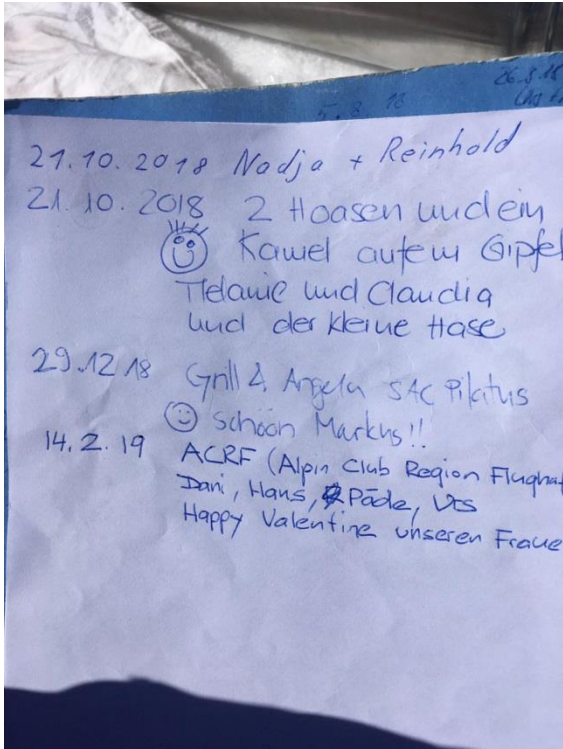 5.8.18 26.8.18
21.10.2018 Nadja + Reinhold
21.10.2018 2 Hoasen und ein
Kamel aufem Gipfel
Melanie und Claudia
und der kleine Hase
29.12.18 Grill & Angela SAC Pilatus
schöön Markus!!
14.2.19 ACRF (Alpin Club Region Flughaf
Dani, Hans, Päde, Urs
Happy Valentine unseren Fraue